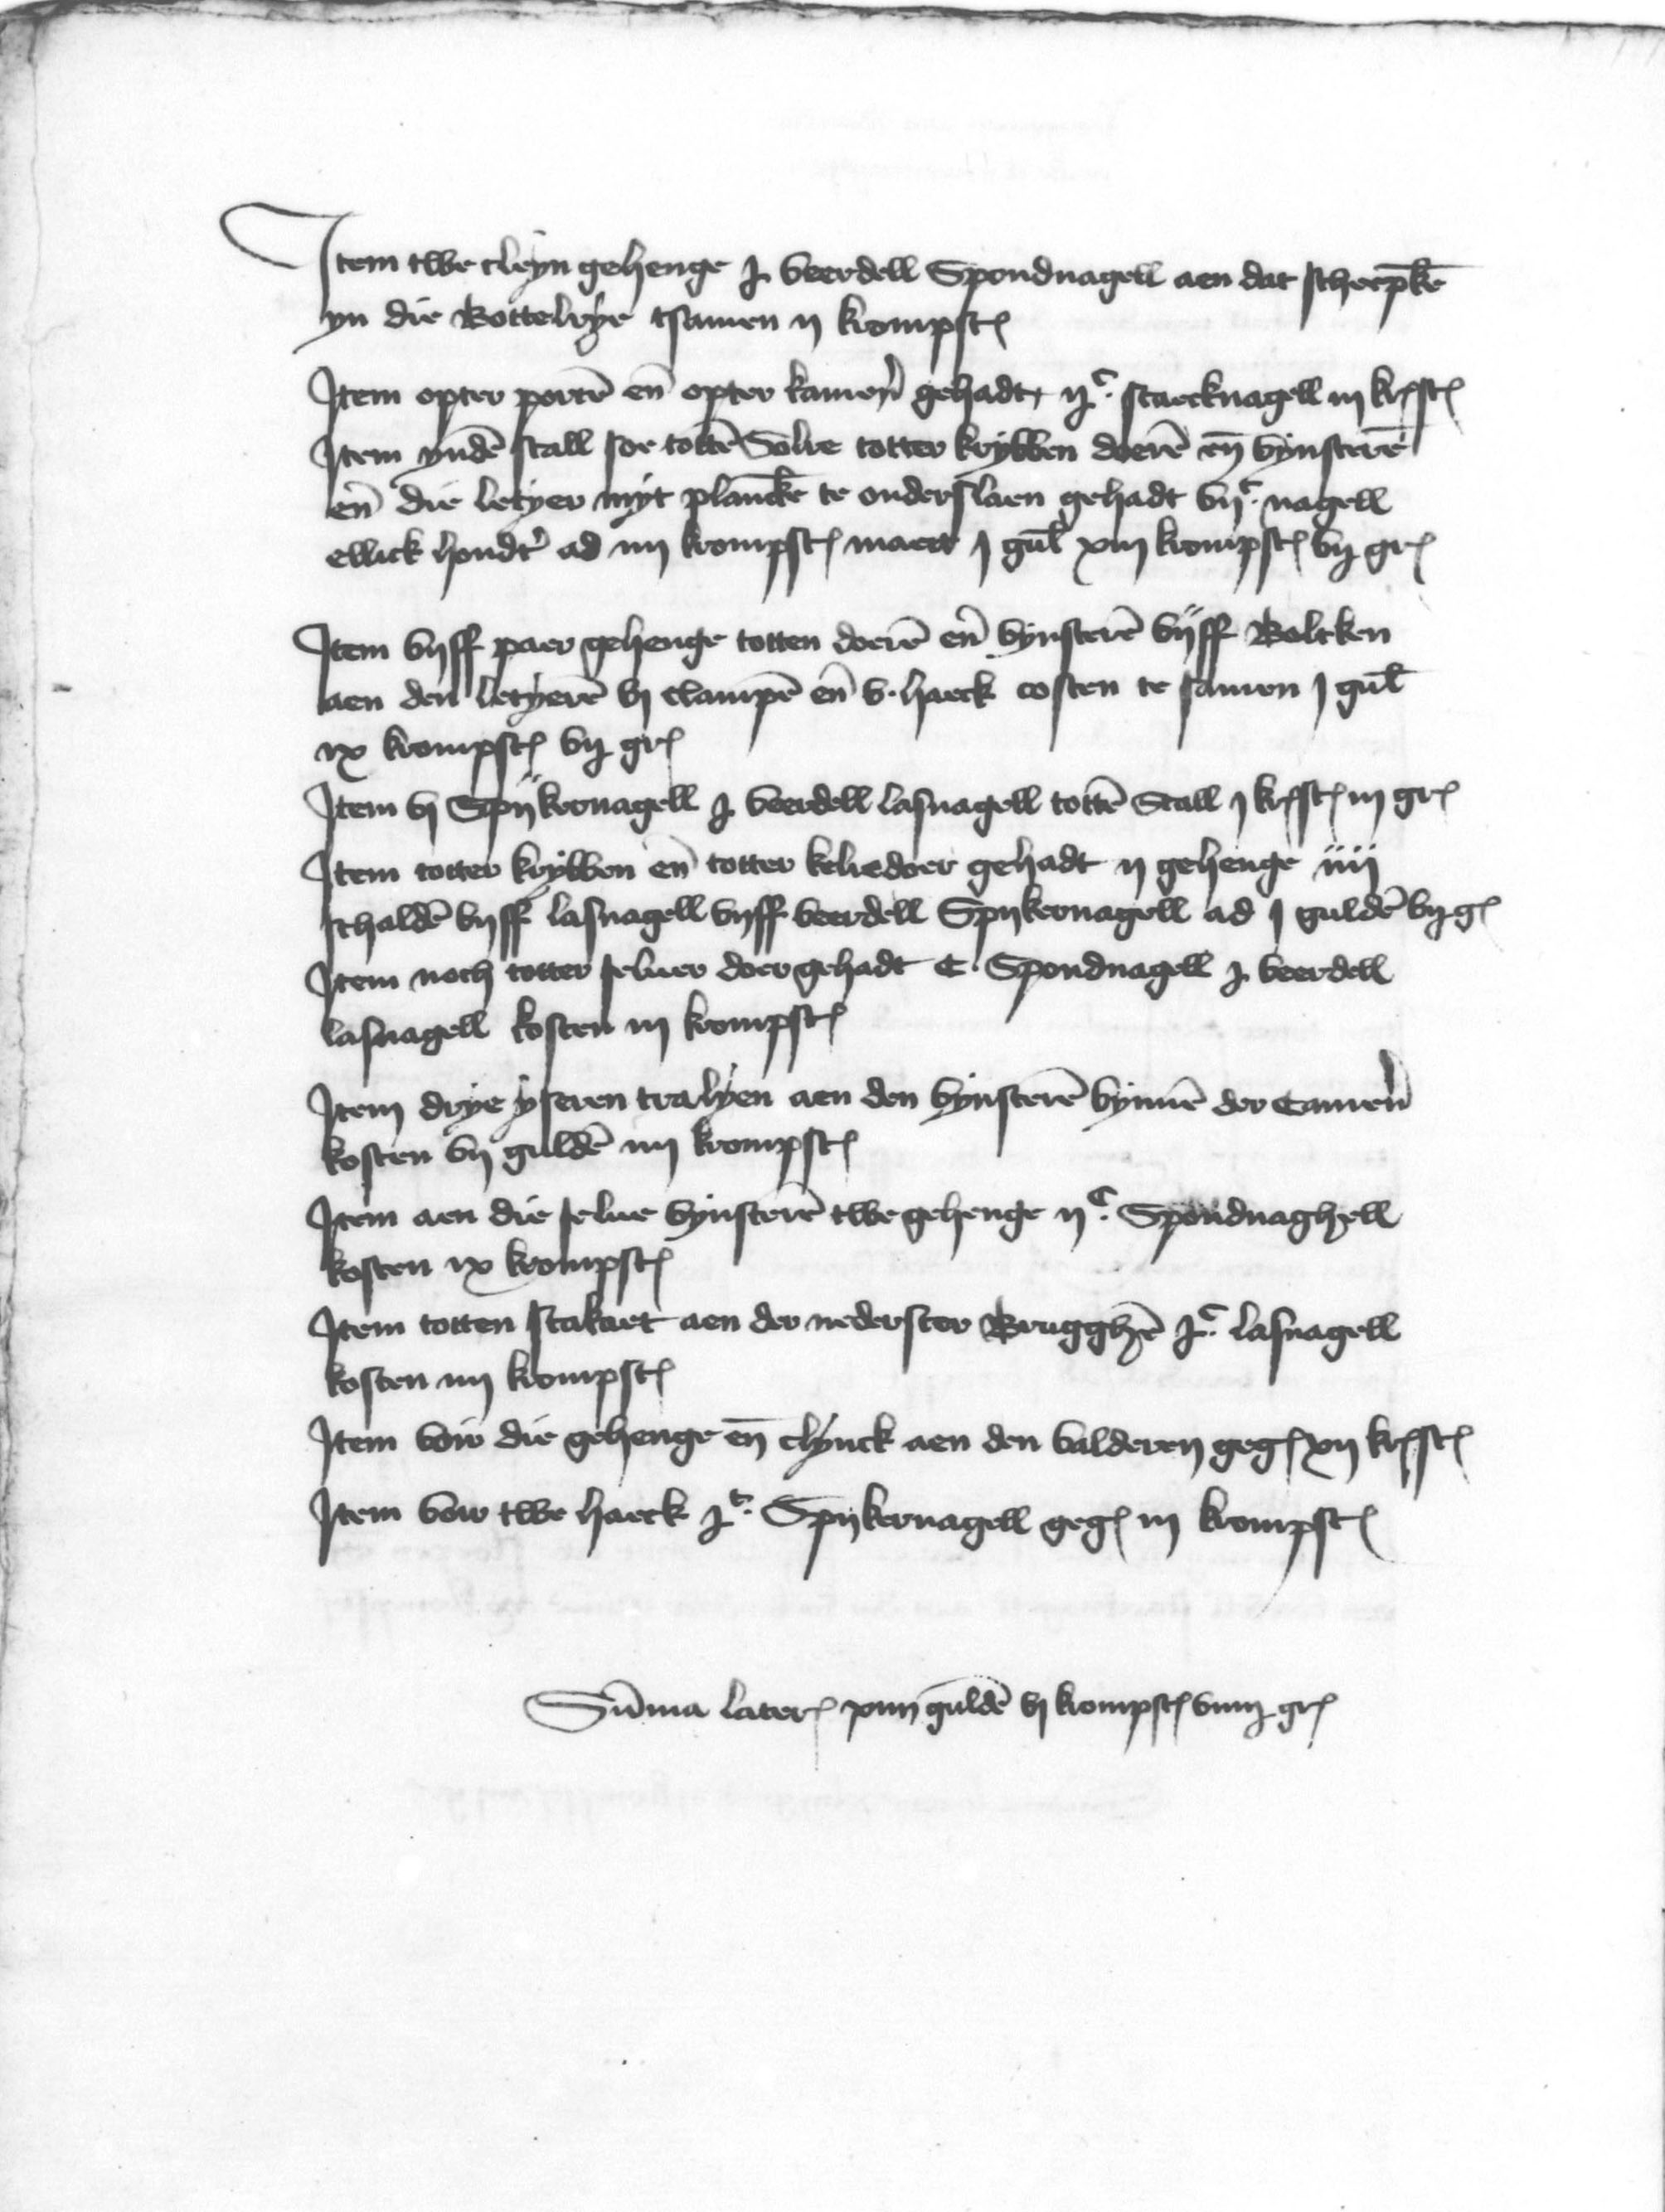 Item twe cleyn gehenge j veerdell Spondnagell aen dat scherpk̄e
yn die Bottelrye tsamen ij krompst
Item opter portē en̄ opter kamern̄ gehadt ijᶜ starcknagell iij krst
Item yndē stall soe tottē Solre totter krybben doerē en̄ vynsterē
en̄ die letyer myt planck̄e te onderslaen gehadt vijᶜ nagell
ellick hondt ad iiij krompst maect j gul̄ xiij krompst vij gr
Item vijff paer gehenge totten doerē en̄ vynsterē vijff Boltken
aen den letyerē vj clampē en̄ v haeck costen te samen j gul̄
ix krompst vij gr
Item vj Spijkernagell j veerdell lasnagell tottē Stall j krst iij gr
Item totter krybben en̄ totter kelredoer gehadt ij gehenge iiij
schaldē vijff lasnagell vijff veerdell Spijkernagell ad j guldē vij g
Item noch totter seluer doer gehadt C Spondnagell j veerdell
lasnagell kosten iij krompst
Item drye yseren tralyen aen den vynsterē bynnē der Camern̄
kosten vij guldē iiij krompst
Item aen die selue vynsterē twe gehenge ijᶜ Spondnaghell
kosten ix krompst
Item totten staket aen der nederster Brugghē jᶜ lasnagell
kosten iiij krompst
Item voir die gehenge en̄ clynck aen den valderen geg xij krst
Item voir twe haeck jᶜ Spijkernagell geg iij krompst
Sūma later xiiij guldē vj krompst viiij gr